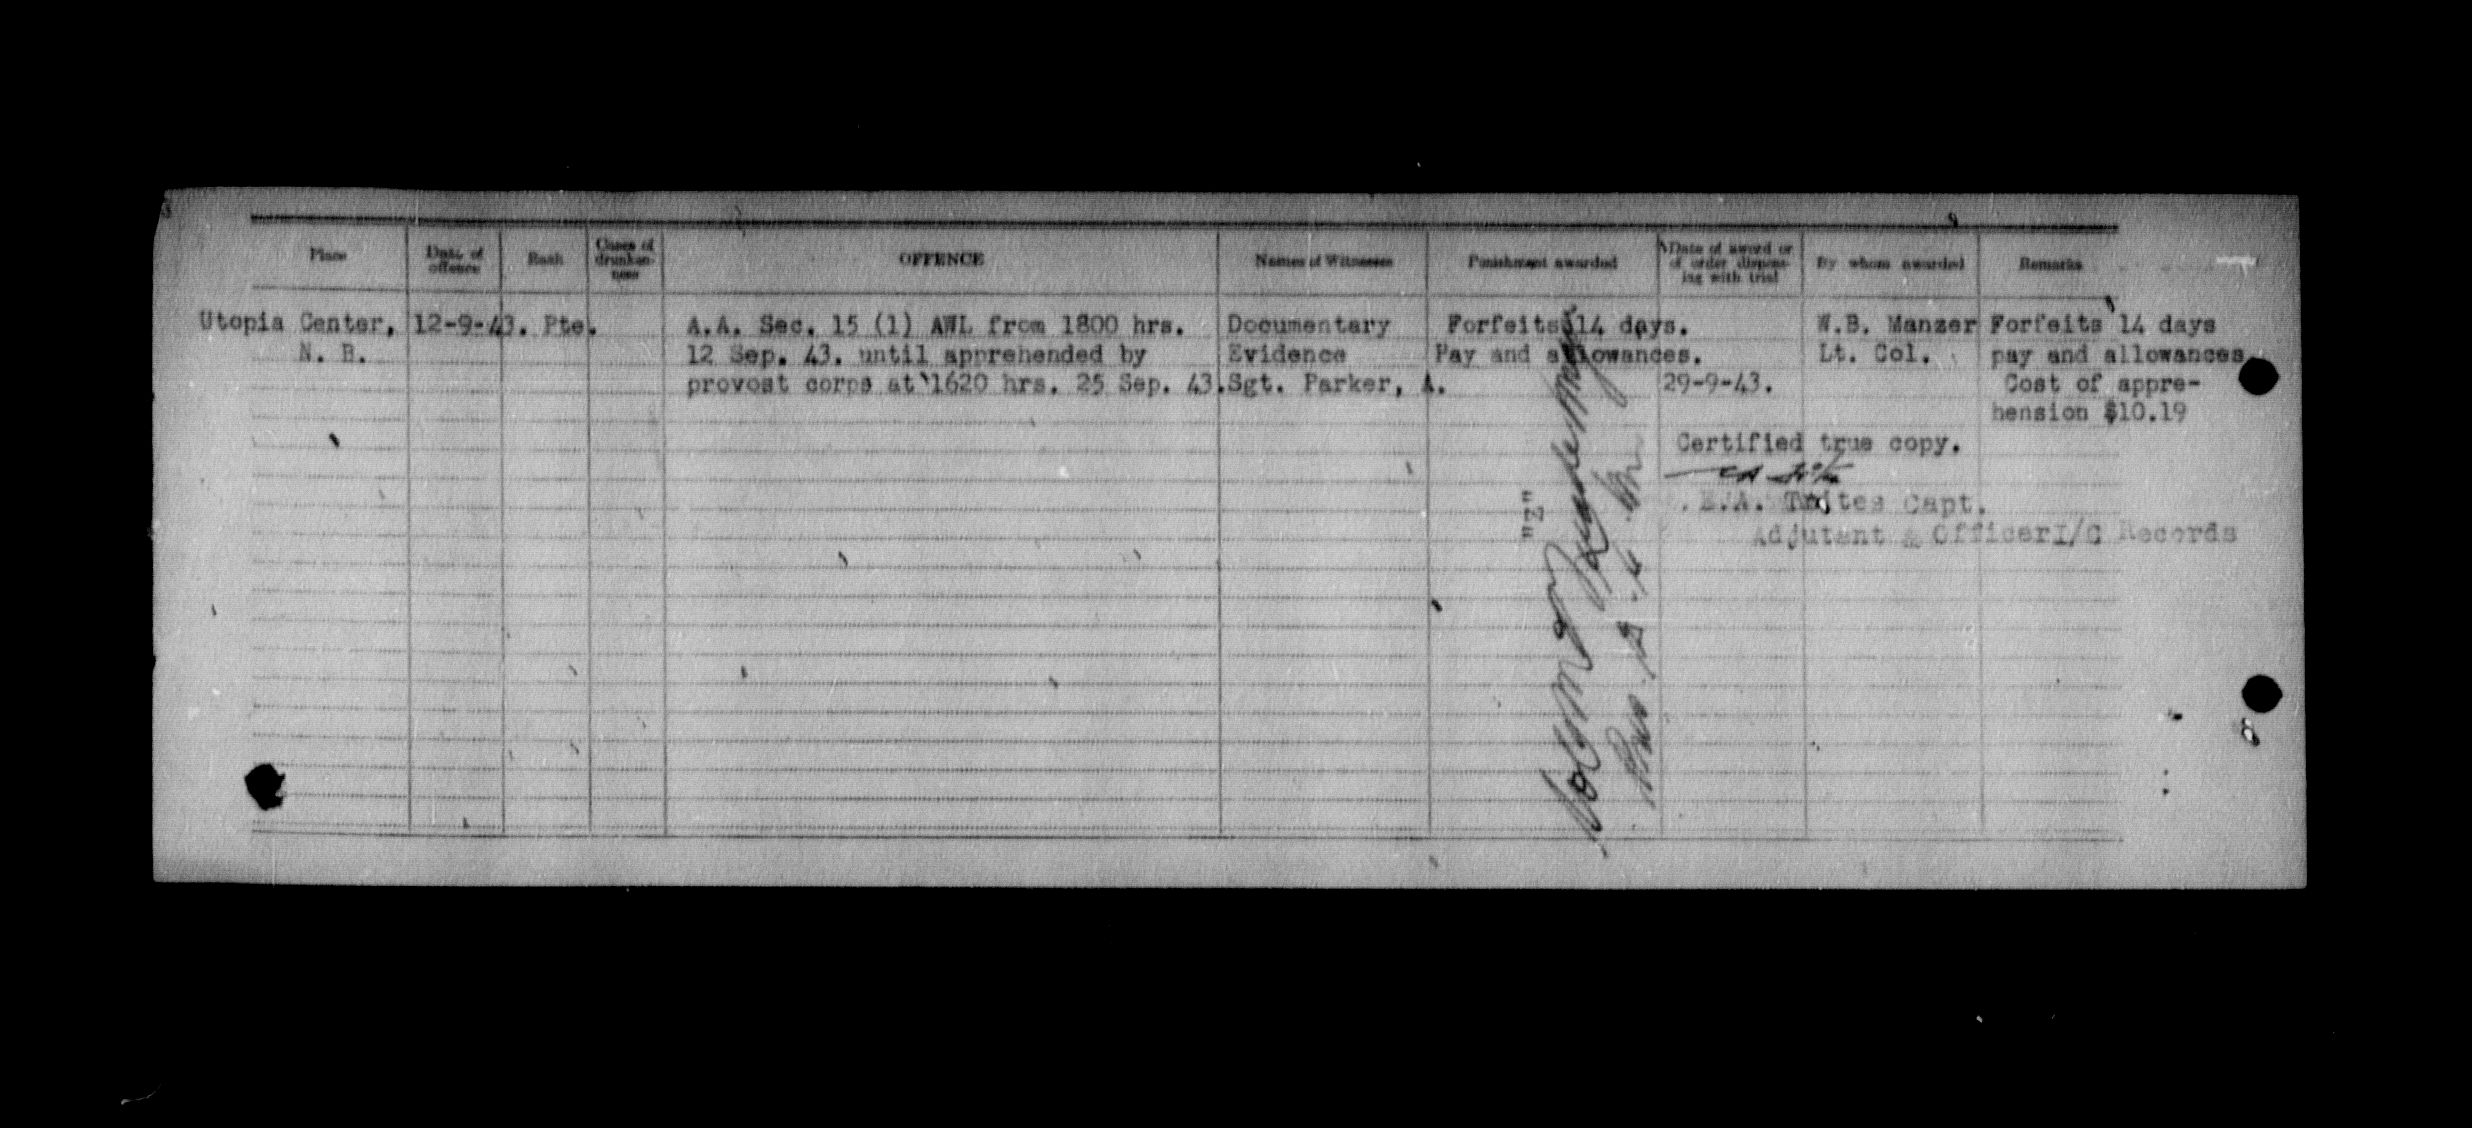 Place Date of offence Rank Cases of drunkenness OFFENCE Names of Witnesses Punishment awarded Date of award or of order dispensing with trial By whom awarded Remarks
Utopia Center, 12-9-43. Pte. A.A. Sec. 15 (1) AWL from 1800 hrs. Documentary Forfeits 14 days. W.B. Manzer Forfeits 14 days
N. B. 12 Sep. 43. until apprehended by Evidence Pay and allowances. Lt. Col. pay and allowances
provost corps at 1620 hrs. 25 Sep. 43. Sgt. Parker, A. 29-9-43. Cost of appre-
hension $10.19
Certified true copy.
Capt.
Adjutant & Officer I/C Records
"Z"